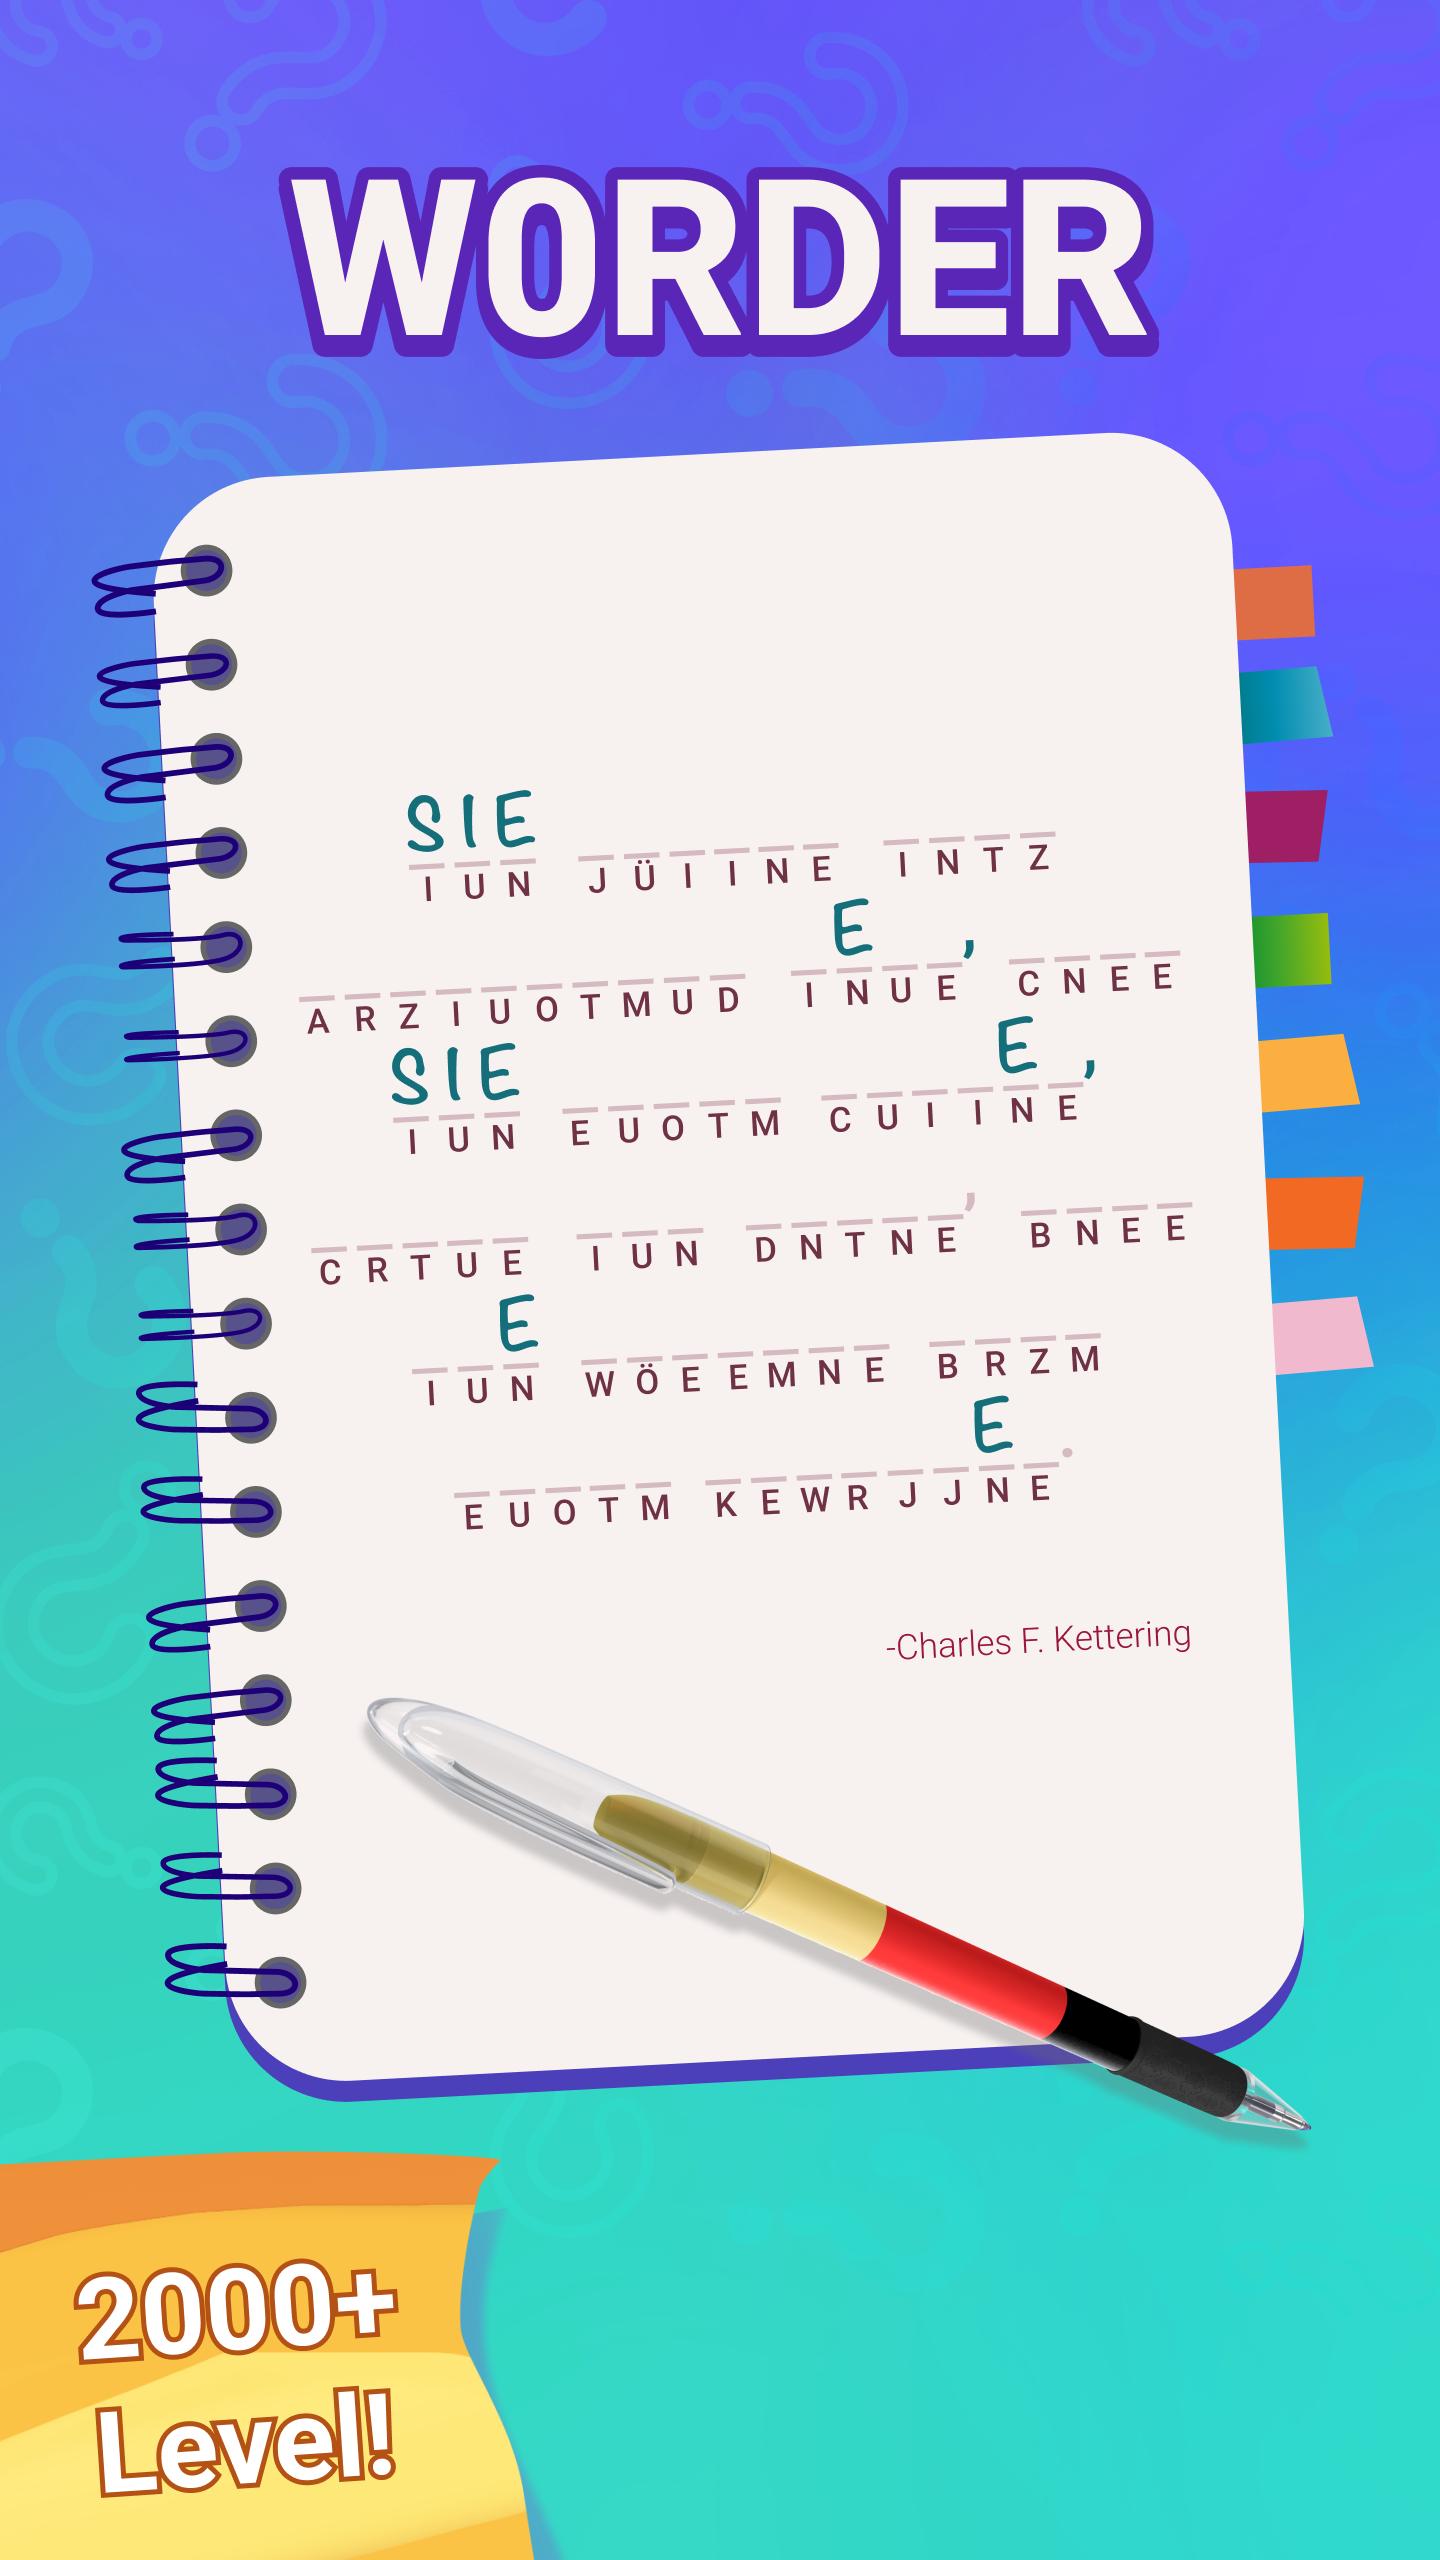 WORDER
SIE
IUN JÜIINE INTZ
E ,
ARZIUOTMUD INUE CNEE
SIE E ,
IUN EUOTM CUIINE
,
CRTUE IUN DNTNE BNEE
E
IUN WÖEEMNE BRZM
E .
EUOTM KEWRJJNE
-Charles F. Kettering
2000+
Level!